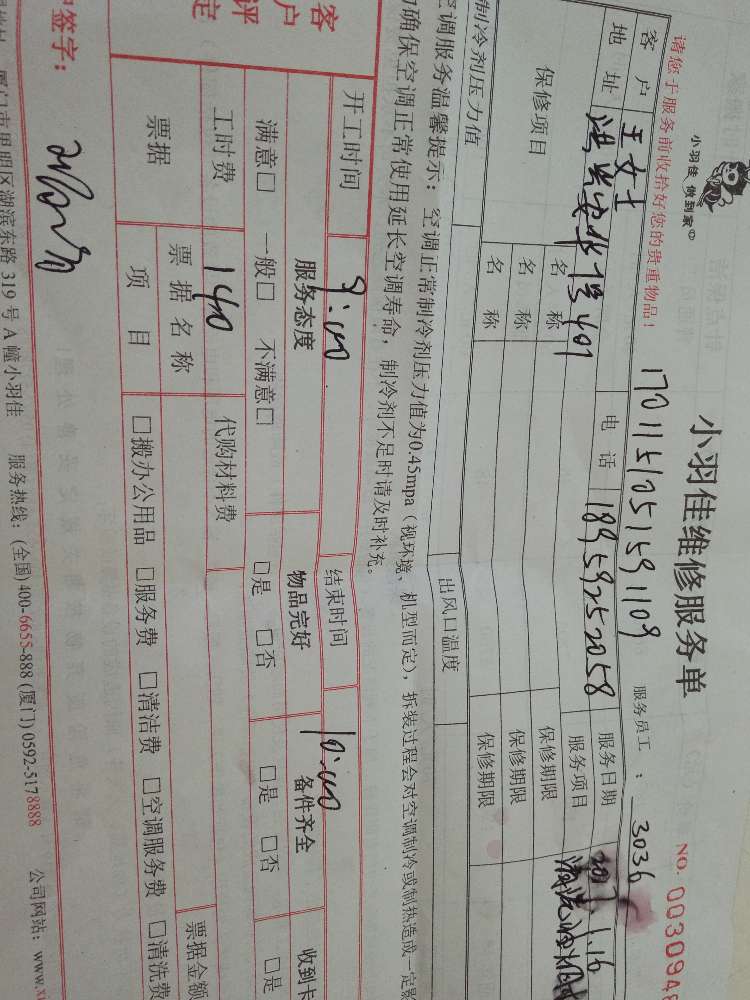 小羽佳 做到家
小羽佳维修服务单
NO. 0030948
请您于服务前收拾好您的贵重物品！
1701151051591109
服务员工：3036
客户 王女士 电话 18959252058 服务日期 2017.1.16
地址 407 服务项目
保修项目 名称 保修期限
名称 保修期限
名称 保修期限
制冷剂压力值 出风口温度
空调服务温馨提示：空调正常制冷剂压力值为0.45mpa（视环境、机型而定），拆装过程会对空调制冷或制热造成一定影
确保空调正常使用延长空调寿命，制冷剂不足时请及时补充。
开工时间 9:00 结束时间 10:00
客户评定
服务态度 物品完好 备件齐全 收到卡
满意□ 一般□ 不满意□ □是 □否 □是 □否 □是
工时费 140 代购材料费
票据 票据名称 票据金额
项目 □搬办公用品 □服务费 □清洁费 □空调服务费 □清洗费
签字：
厦门市思明区湖滨东路319号A幢小羽佳 服务热线：(全国)400-6655-888 (厦门)0592-5178888 公司网站：www.xi